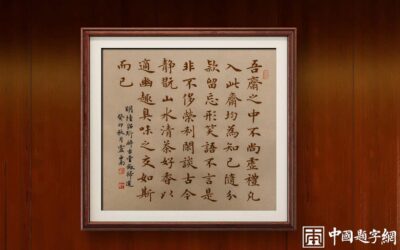 吾齋之中不尚虛禮凡
入此齋均為知己隨分
款留忘形笑語不言是
非不侈榮利閒談古今
靜翫山水清茶好香以
適幽趣臭味之交如斯
而已
明陸紹珩醉古堂劍掃選
癸卯秋月盧中南
中國題字網